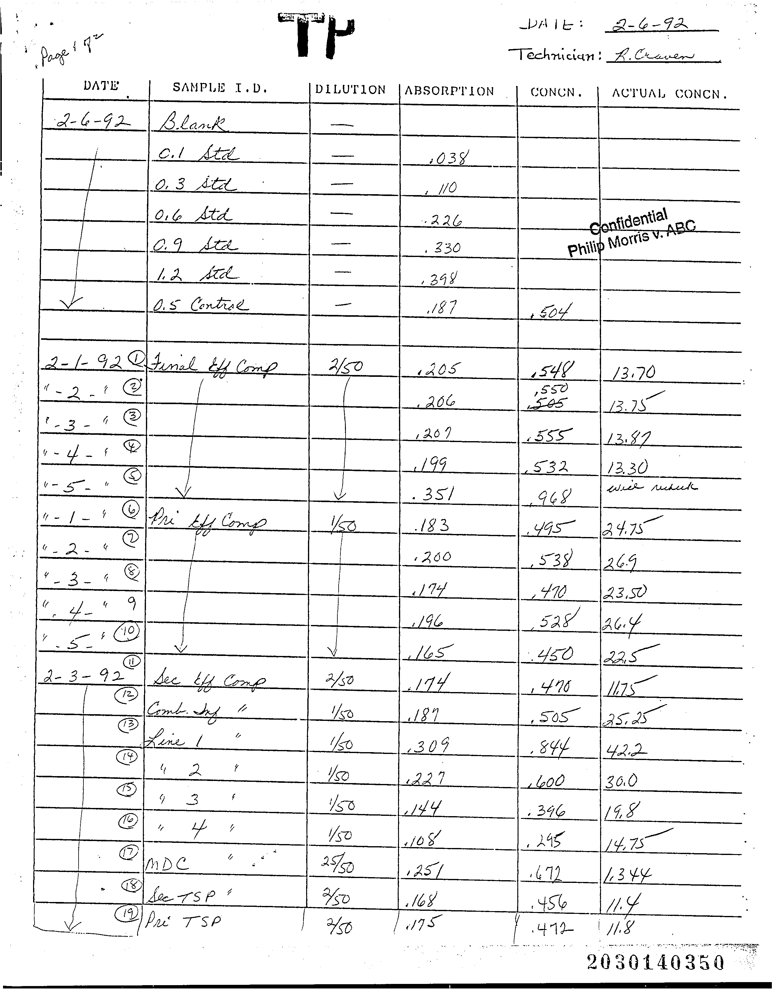 TP
DATE: 2-6-92
Page 1 of 2
Technician: R. Craven
DATE SAMPLE I.D. DILUTION ABSORPTION CONCN. ACTUAL CONCN.
2-6-92 Blank —
0.1 Std — .038
0.3 Std — .110
0.6 Std — .226
Confidential
Philip Morris v. ABC
0.9 Std — .330
1.2 Std — .398
0.5 Control — .187 .504
2-1-92 ① Final Eff Comp 2/50 .205 .548 13.70
"-2-" ② .206 .550 .505 13.75
"-3-" ③ .207 .555 13.87
"-4-" ④ .199 .532 13.30
"-5-" ⑤ .351 .968 will
"-1-" ⑥ Pri Eff Comp 1/50 .183 .495 24.75
"-2-" ⑦ .200 .538 26.9
"-3-" ⑧ .174 .470 23.50
"-4-" 9 .196 .528 26.4
"-5-" ⑩ .165 .450 22.5
2-3-92 ⑪ Sec Eff Comp 2/50 .174 .470 11.75
⑫ Comb. Inf " 1/50 .187 .505 25.25
⑬ Line 1 " 1/50 .309 .844 42.2
⑭ " 2 " 1/50 .227 .600 30.0
⑮ " 3 " 1/50 .144 .396 19.8
⑯ " 4 " 1/50 .108 .295 14.75
⑰ MDC " 25/50 .251 .672 1.344
⑱ Sec TSP " 2/50 .168 .456 11.4
⑲ Pri TSP 2/50 .175 .472 11.8
2030140350